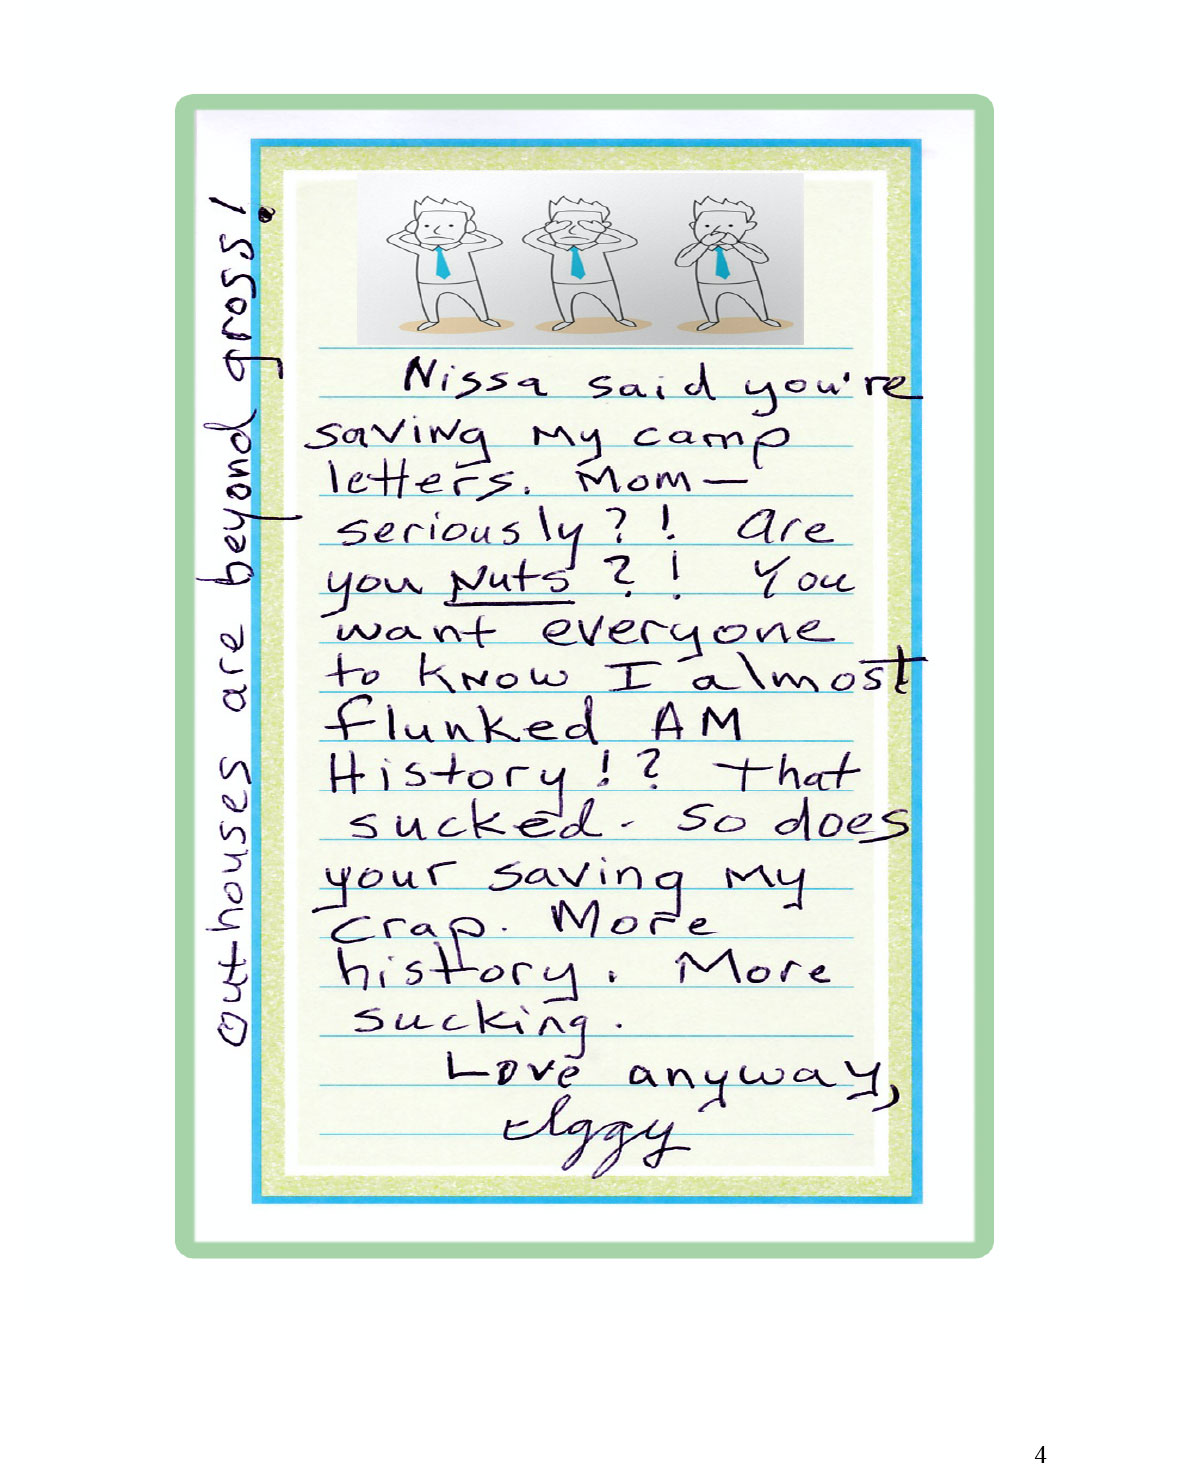 Nissa said you're
saving my camp
letters. Mom—
seriously?! Are
you Nuts?! You
want everyone
to know I almost
flunked AM
History!? That
sucked. So does
your saving my
crap. More
history. More
sucking.
Love anyway,
Iggy
Outhouses are beyond gross!
4